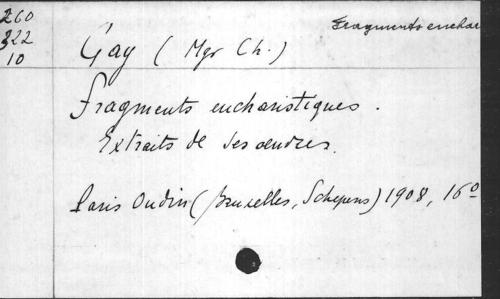 260
322
10
Fragments euchar
Gay (Mgr Ch.)
Fragments eucharistiques.
Extraits de ses œuvres.
Paris Oudin (Bruxelles, Schepens) 1908, 16o